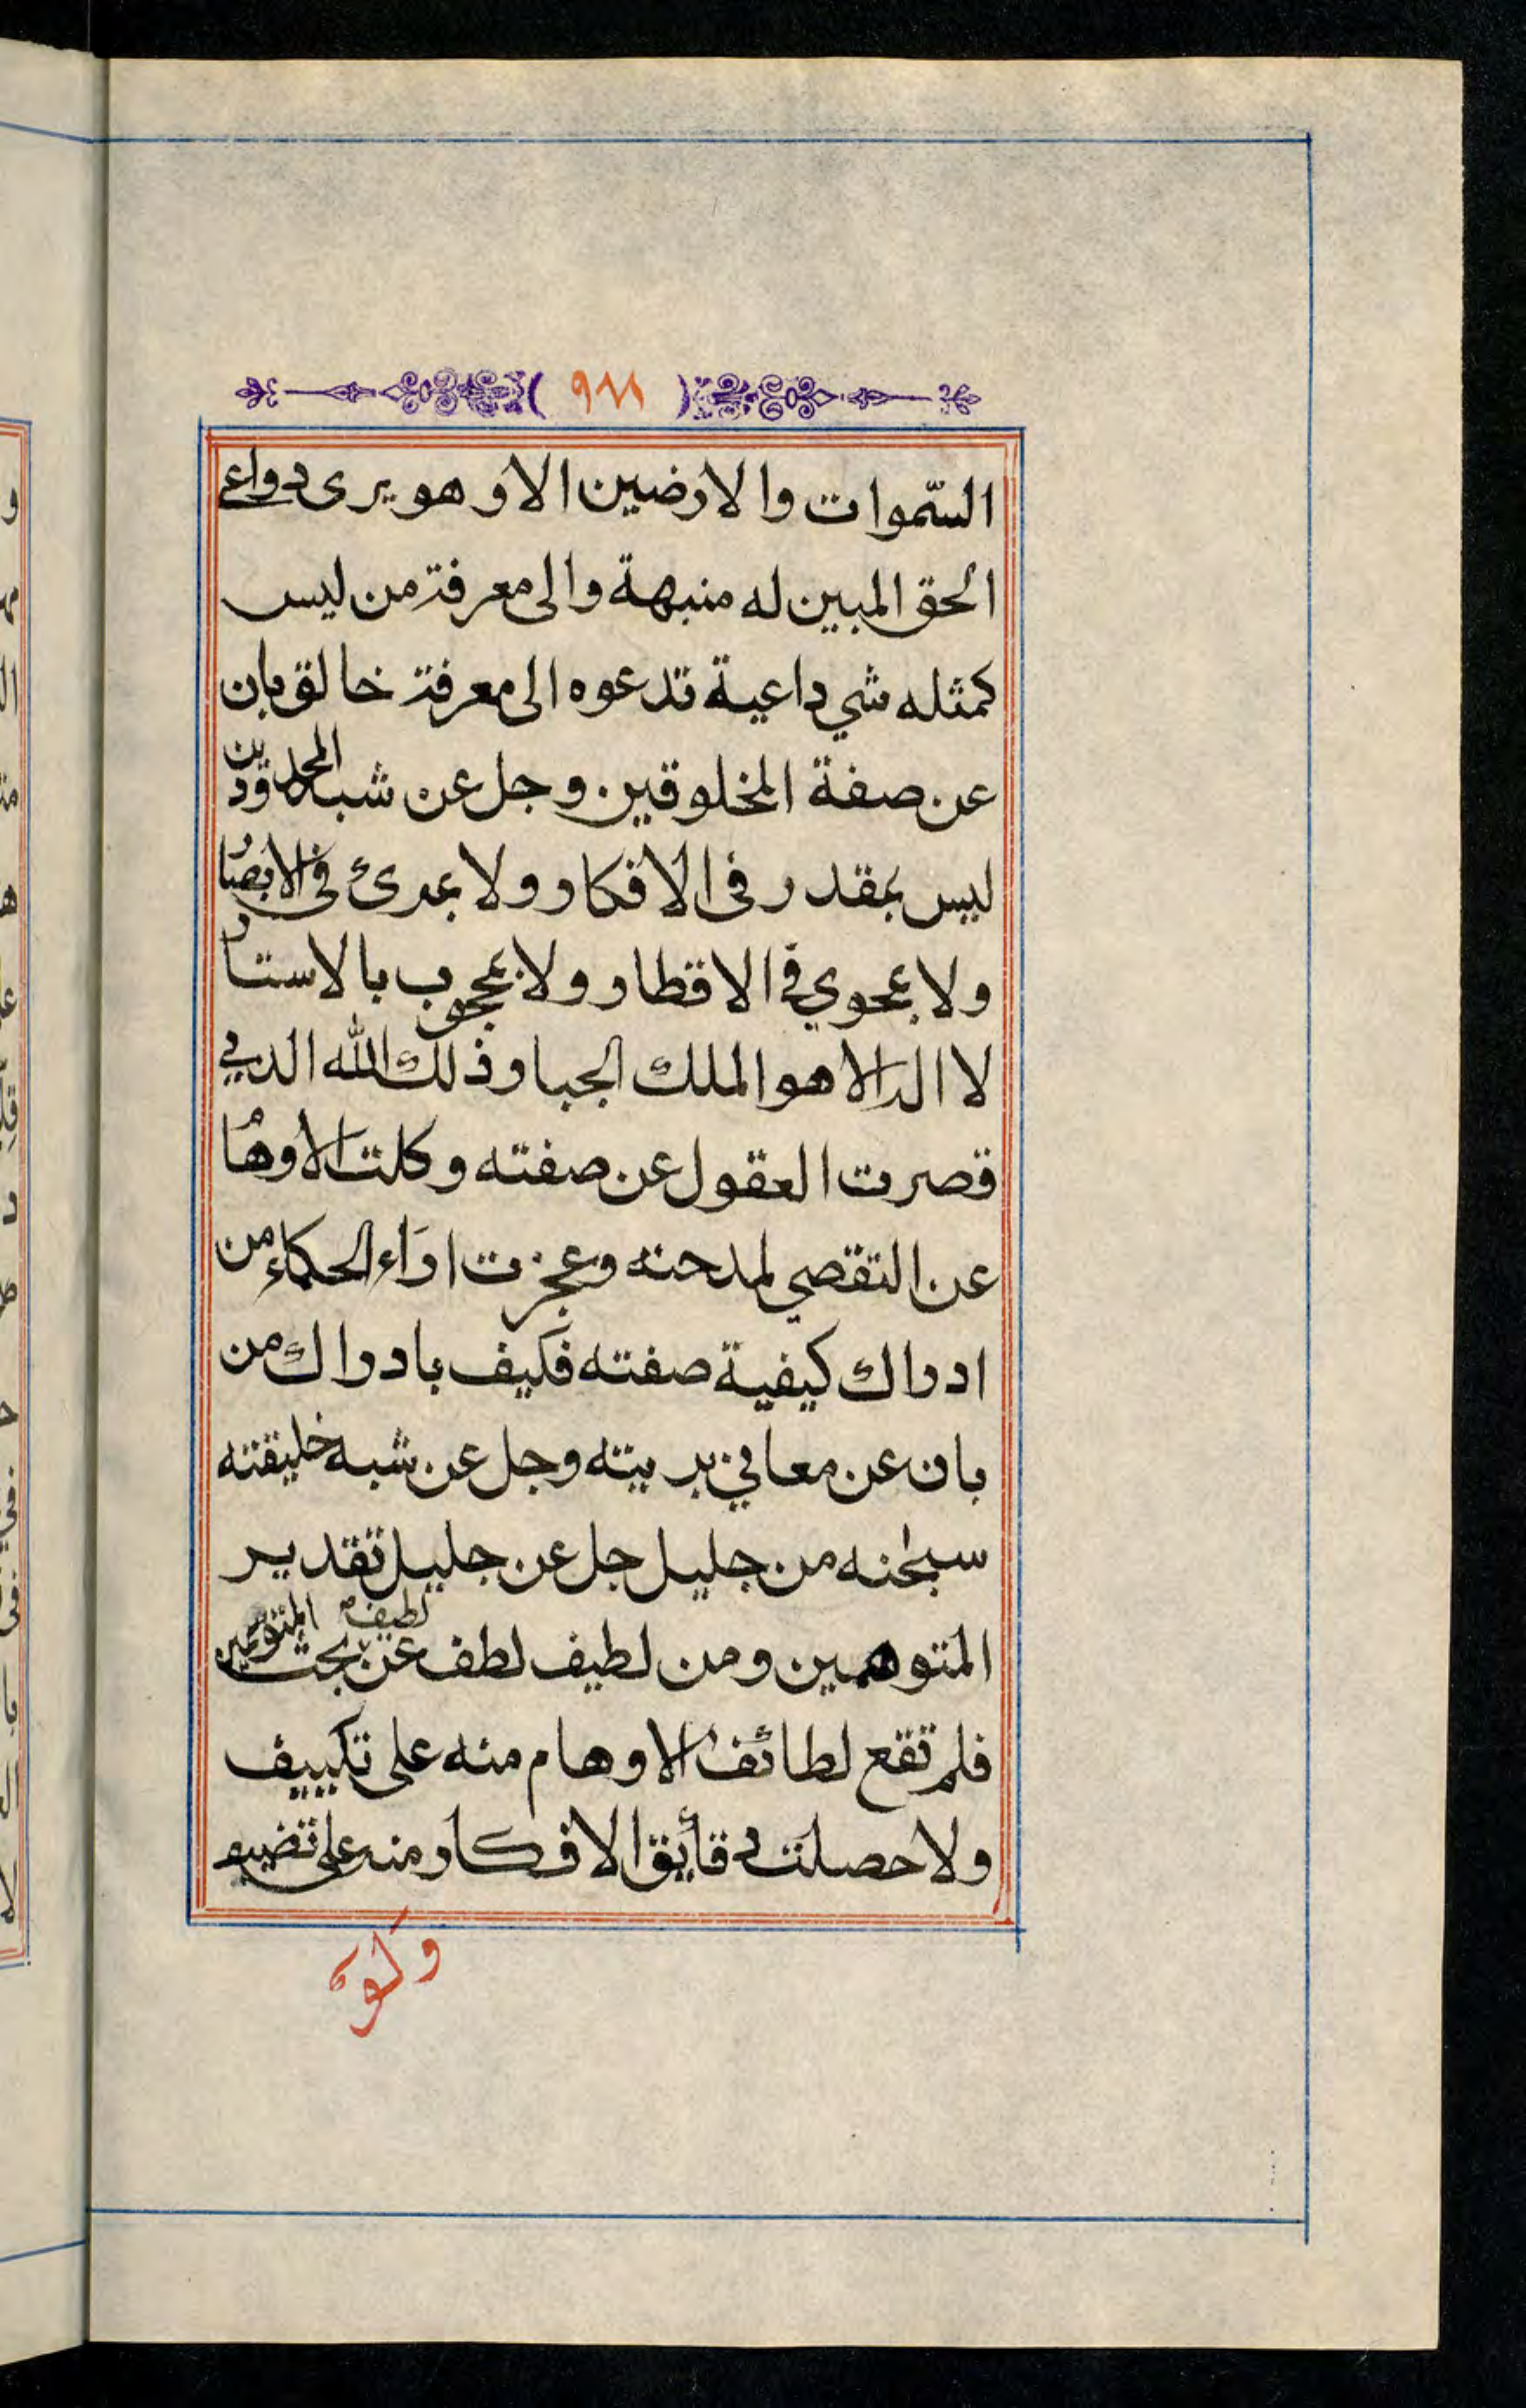 ٩٨٨
السّموات والارضين الا و هو يرى دواعي
الحق المبين له منبهة والى معرفة من ليس
كمثله شي داعية تدعوه الى معرفة خالق بان
عن صفة المخلوقين وجل عن شبه المحدودين
ليس بمقدر في الافكار ولا بمرئ في الابصار
ولا بمحوي في الاقطار ولا بمحجوب بالاستار
لا اله الا هو الملك الجبار ذلك الله الذي
قصرت العقول عن صفته وكلت الاوهام
عن التقصي لمدحته وعجزت اراء الحكماء من
ادراك كيفية صفته فكيف بادراك من
بان عن معاني بريته وجل عن شبه خليقته
سبحنه من جليل جل عن جليل تقدير
المتوهمين ومن لطيف لطف عن لطيف بحث المتوهمين
فلم تقع لطائف الاوهام منه على تكييف
ولا حصلت دقائق الافكار منه على